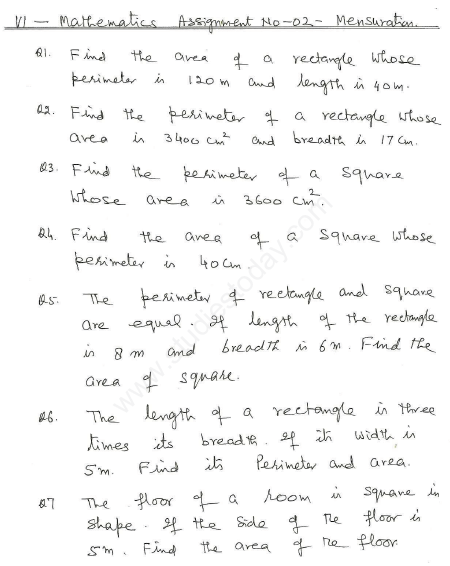 VI - Mathematics Assignment No-02- Mensuration.
Q1. Find the area of a rectangle whose
perimeter is 120 m and length is 40 m.
Q2. Find the perimeter of a rectangle whose
area is 3400 cm² and breadth is 17 cm.
Q3. Find the perimeter of a square
whose area is 3600 cm².
Q4. Find the area of a square whose
perimeter is 40 cm.
Q5. The perimeter of rectangle and square
are equal. If length of the rectangle
is 8 m and breadth is 6 m. Find the
area of square.
Q6. The length of a rectangle is three
times its breadth. If its width is
5 m. Find its Perimeter and area.
Q7 The floor of a room is square in
shape. If the side of the floor is
5 m. Find the area of the floor.
www.studiestoday.com